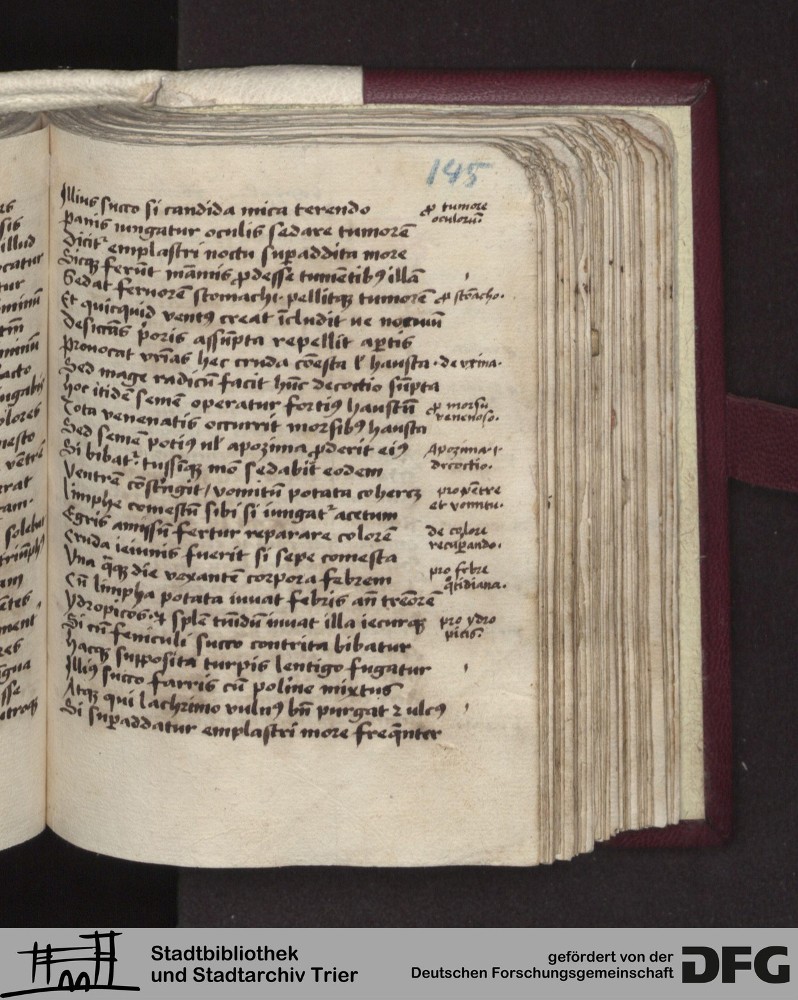 145
Illius succo si candida mica terendo
Panis iungatur oculis sedare tumorē
Dicit᷑ emplastri noctu suꝑaddita more
Sicqꝫ ferūt māmis ꝓdesse tumētibꝰ illā
Sedat feruorē stomachi· pellitqꝫ tumorē
Et quicquid ventꝰ creat īcludit ue
poris assūpta repellit
Prouocat vrīas hec cruda cōesta l' hausta·
Sed mage radicū facit hūc decoctio sūpta
Hoc itidē semē operatur fortiꝰ haustū
Tota venenatis occurrit morsibꝰ hausta
Sed semē potiꝰ apozima ꝓderit eiꝰ
Si bibat᷑ tussīqꝫ mō sedabit eodem
Ventrē cōstringit / vomitū potata cohercꝫ
Limphe comestū sibi si iungat᷑ acetum
Egris amissū fertur reparare colorē
Cruda ieiunis fuerit si sepe comesta
Vna q̄qꝫ die vexantē corpora febrem
Cū limpha potata iuuat febris an̄ tremorē
Ydropicos splē tūidū iuuat illa iecurqꝫ
Si cū feniculi succo contrita bibatur
Hacqꝫ supposita turpis lentigo fugatur
Illiꝰ succo farris cū poline mixtus
Atqꝫ qui lachrimo vulnꝰ bn̄ purgat ⁊ ulcꝰ
Si suꝑaddatur emplastri more freq̄nter
ꝓ tumore
oculorū·
ꝓ stōacho·
de vrina·
ꝓ morsu
venenoso·
Apozima·i·
decoctio·
pro vētre
et vomitu·
de colore
recuꝑando·
pro febre
q̄tidiana·
pro ydro
picis·
Stadtbibliothek
und Stadtarchiv Trier
gefördert von der
Deutschen Forschungsgemeinschaft
DFG